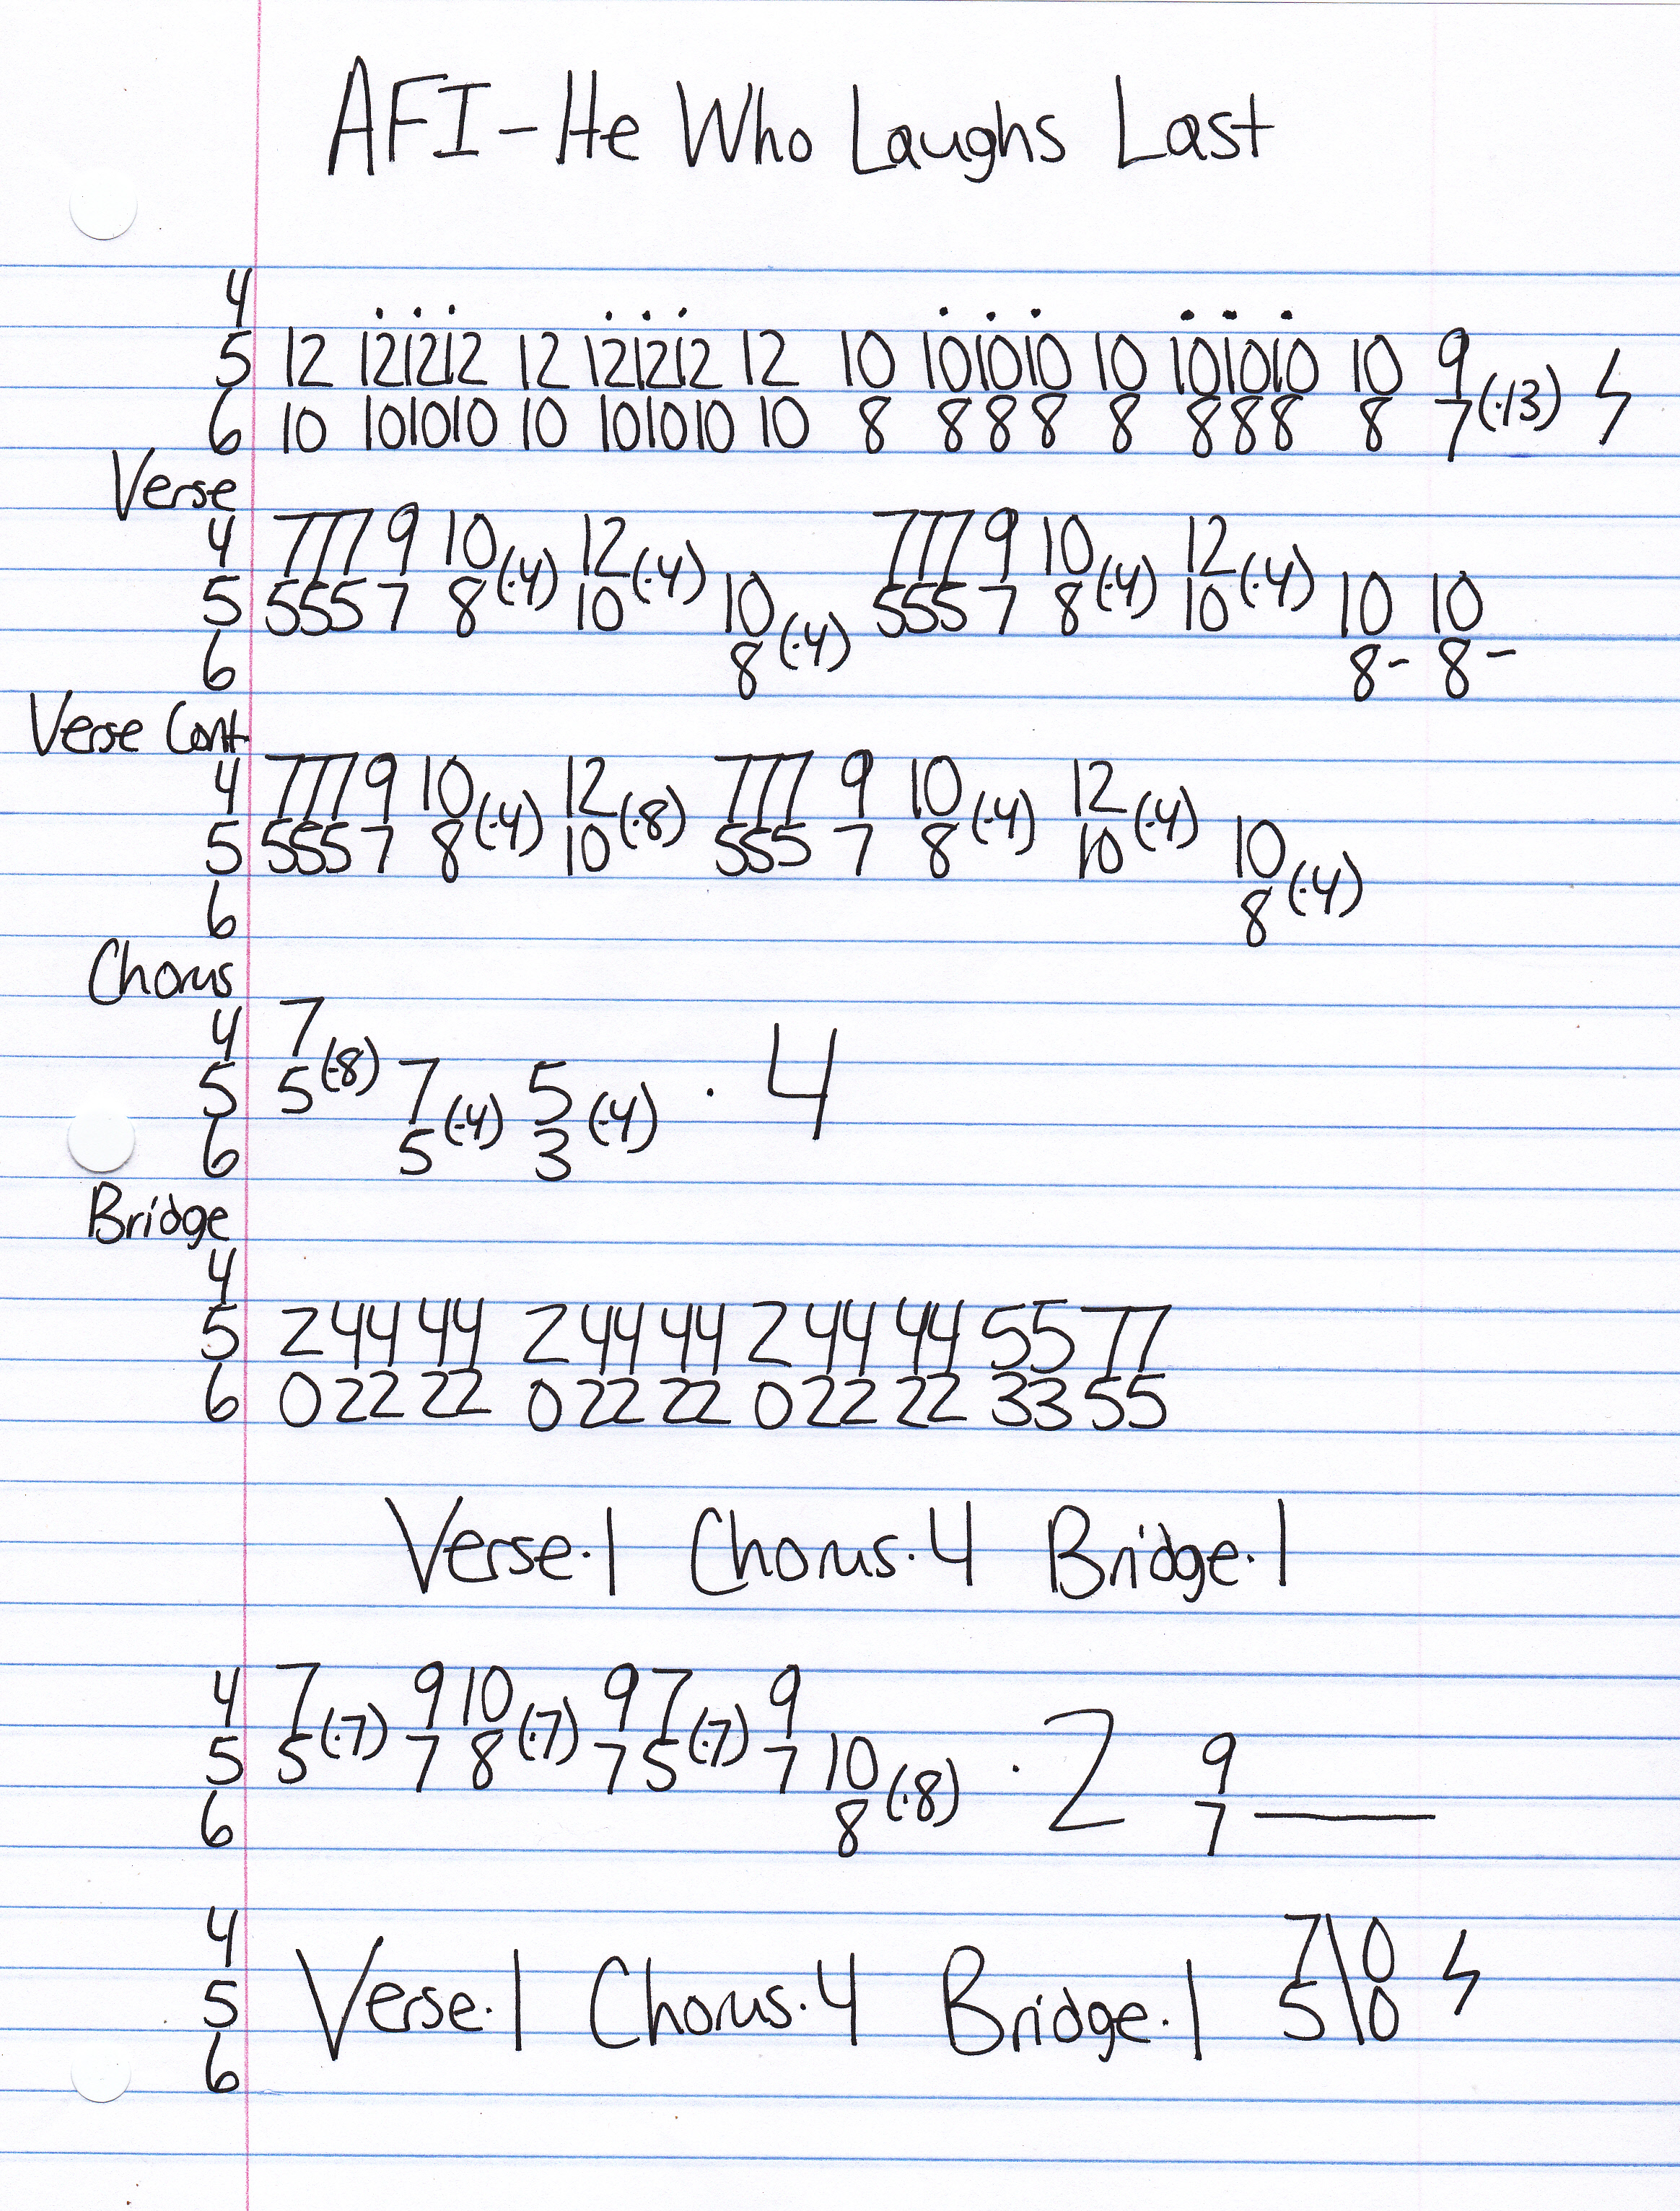 AFI - He Who Laughs Last
4 . . . . . . . . . . . .
5 12 121212 12 121212 12 10 101010 10 101010 10 9
6 10 101010 10 101010 10 8 888 8 888 8 7 (·13) ϟ
Verse
4 777 9 10 (·4) 12 (·4) 777 9 10 (·4) 12 (·4)
5 555 7 8 10 10 555 7 8 10 10 10
6 8 (·4) 8- 8-
Verse Cont.
4 777 9 10 (·4) 12 (·8) 777 9 10 (·4) 12 (·4)
5 555 7 8 10 555 7 8 10 10
6 8 (·4)
Chorus
4 7 (·8)
5 5 7 5 · 4
6 5 (·4) 3 (·4)
Bridge
4
5 2 44 44 2 44 44 2 44 44 55 77
6 0 22 22 0 22 22 0 22 22 33 55
Verse·1 Chorus·4 Bridge·1
4 7 (·7) 9 10 (·7) 9 7 (·7) 9
5 5 7 8 7 5 7 10 · 2 9
6 8 (·8) 7 ___
4 7\0
5 Verse·1 Chorus·4 Bridge·1 5\0 ϟ
6